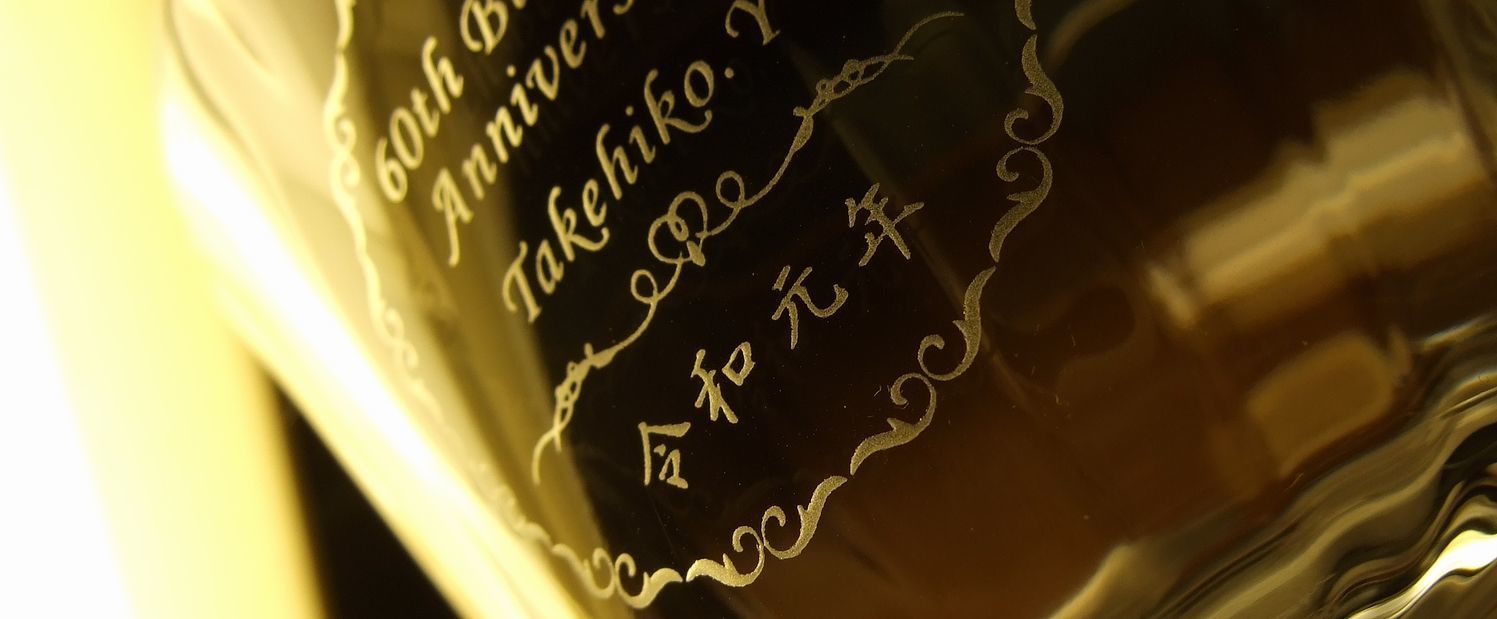 60th Bi
Annivers
Takehiko. Y
令和元年